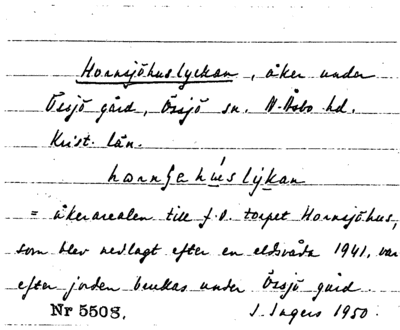 Hornsjöhuslyckan, åker under
Össjö gård, Össjö sn. N. Åsbo hd.
Krist. län.
= åkerarealen till f.d. torpet Hornsjöhus,
som blev nedlagt efter en eldsvåda 1941, var
efter jorden brukas under Össjö gård.
Nr 5508. I. Ingers 1950.